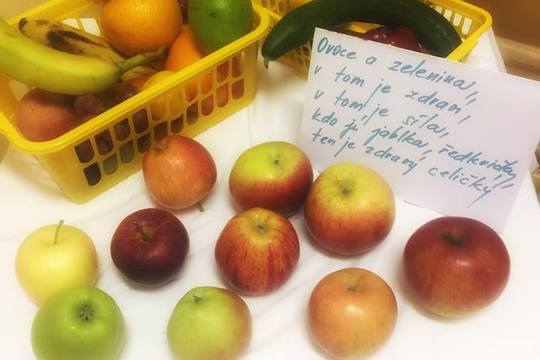 Ovoce a zelenina,
v tom je zdraví,
v tom je síla,
kdo jí jablka, ředkvičky,
ten je zdravý celičký